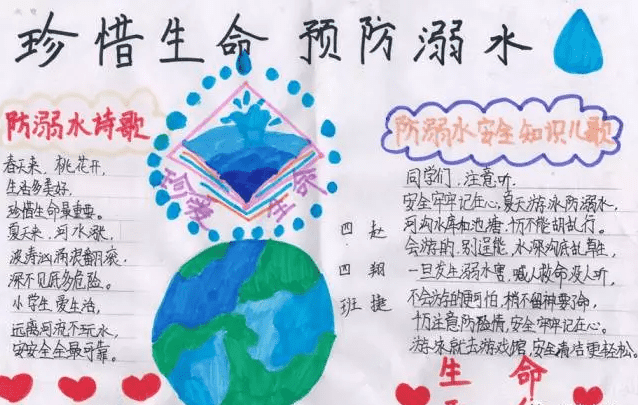 珍惜生命 预防溺水
防溺水诗歌
春天来,桃花开,
生活多美好,
珍惜生命最重要。
夏天来,河水涨,
波涛汹涌浪翻滚,
深不见底多危险。
小学生爱生活,
远离河流不玩水,
安安全全最可靠。
珍爱生命
四四班
赵翔捷
防溺水安全知识儿歌
同学们,注意听,
安全牢牢记在心,夏天游泳防溺水。
河沟水库和池塘,千万不能胡乱行。
会游的,别逞能,水深沟底乱草生,
一旦发生溺水害,喊人救命没人听,
不会游的更可怕,稍不留神要了命,
千万注意防险情,安全牢牢记在心。
游泳就去游戏馆,安全清洁更轻松。
生命